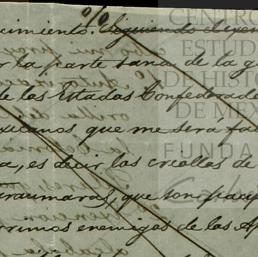 cimiento. Siguiendo
r la parte sana de la g
de los Estados Confedera
xicanos, que me sera fa
a, es decir los criollos de
araumaras, que son
errimos enemigos de los Ap
CENTRO
ESTUD
DE HISTO
DE MÉX
FUNDA